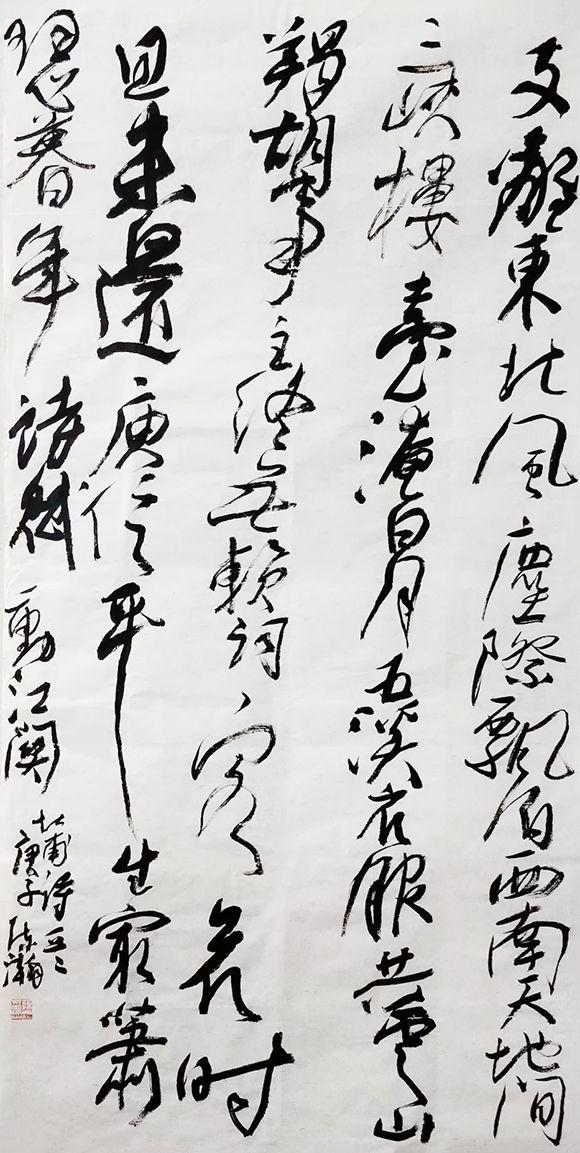 支離東北風塵際飄泊西南天地間
三峽樓臺淹日月五溪衣服共雲山
羯胡事主終無賴詞客哀时
且未還庾信平生最蕭
瑟暮年詩賦動江關
杜甫詩
庚子 瀚